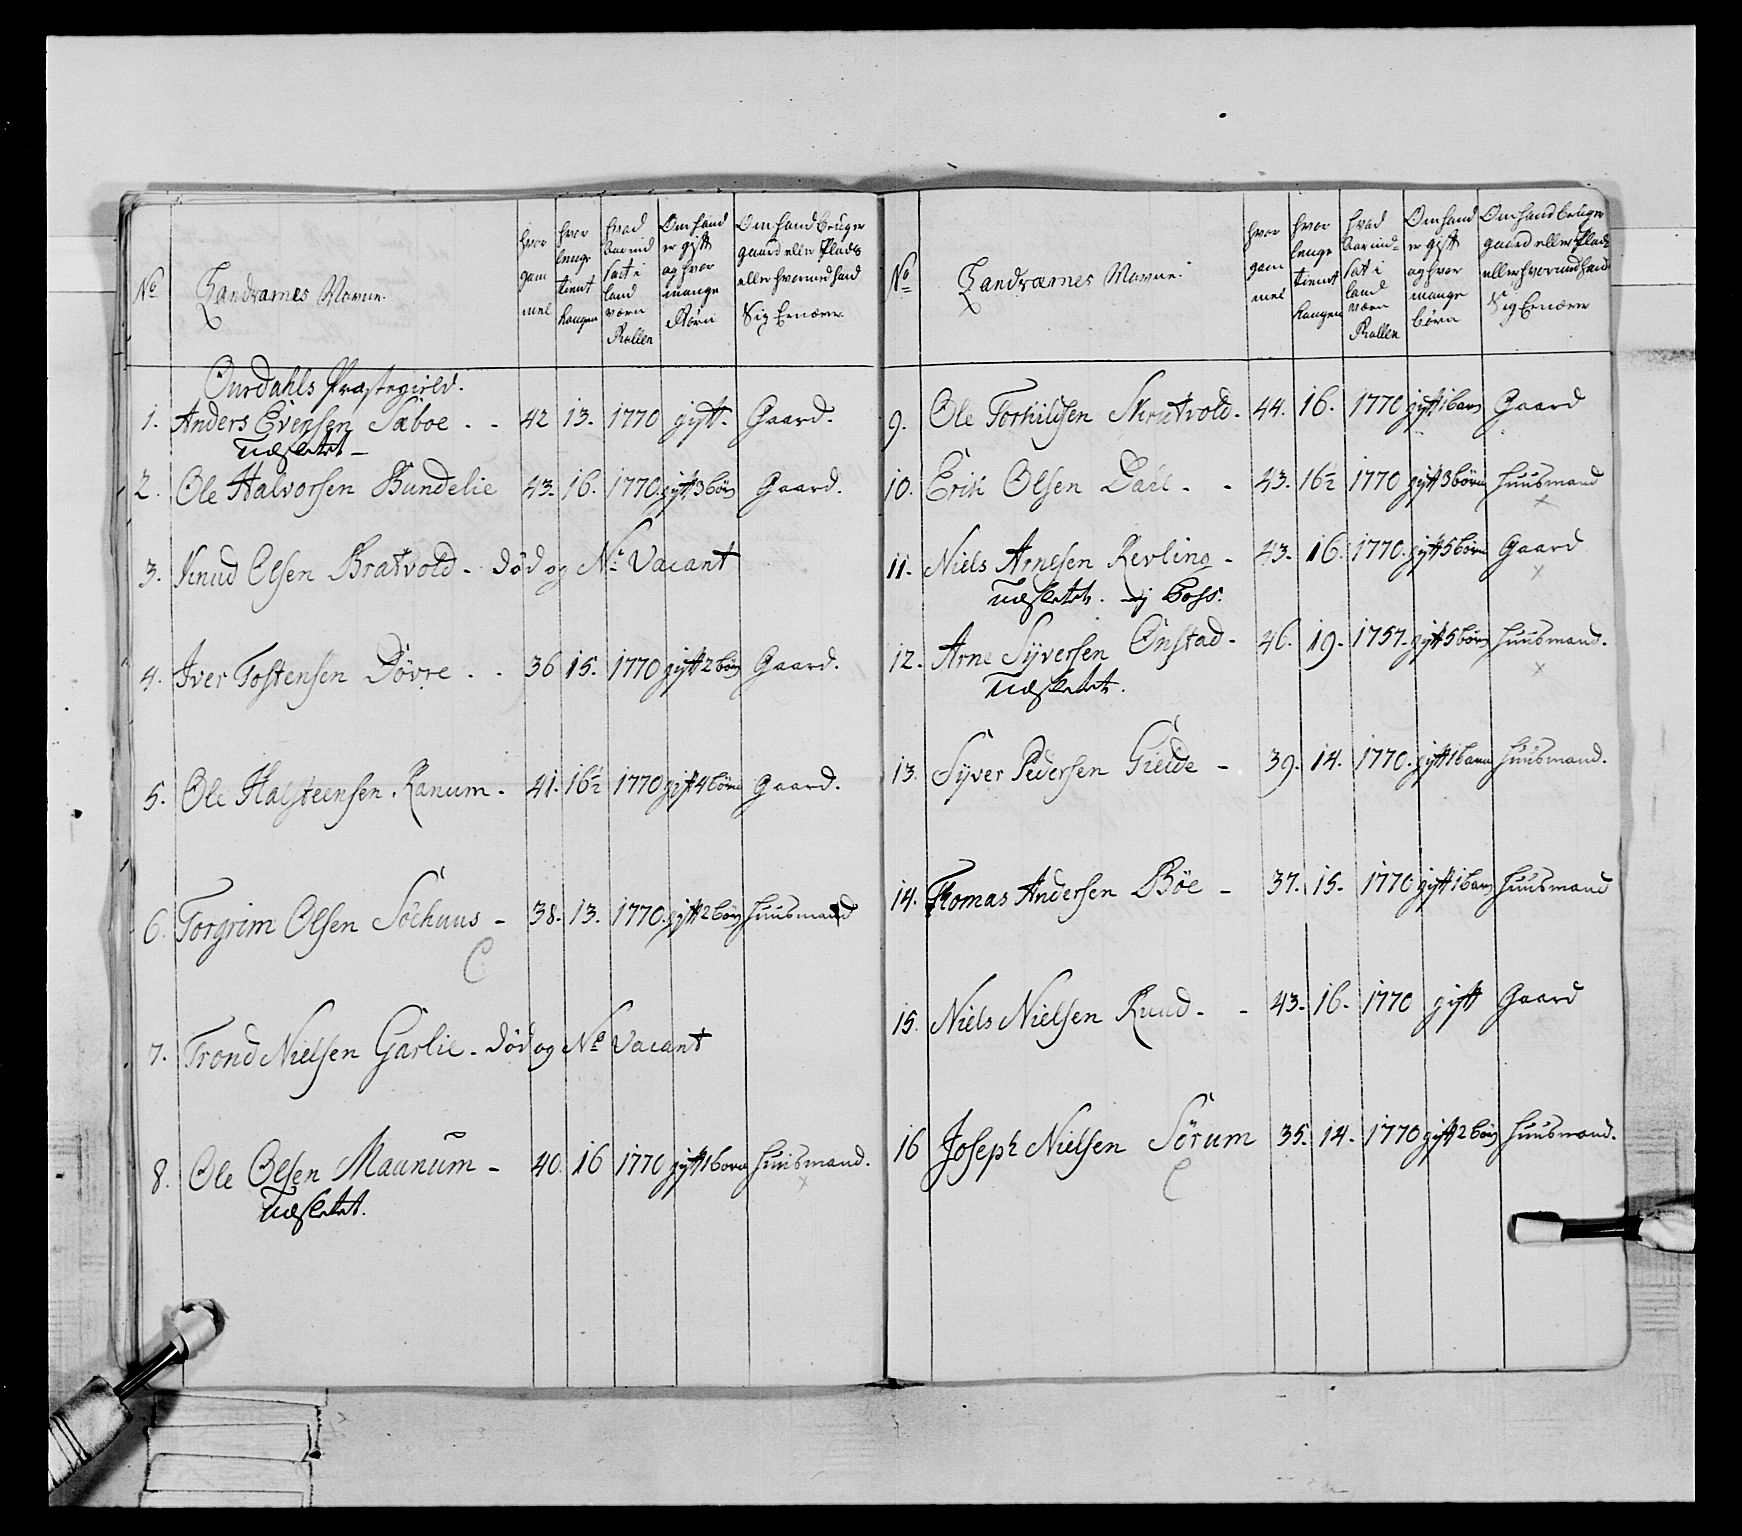 No
Landværnes Navne.
hvor gam mel
hvor lenge tient Kongen
hvad Aar ind satt i land værn Rollen
Om hand er gift og hvor mange Børn
Om hand bruger gaard eller Plads eller hvormed hand Sig Ernærer
Ourdahls Præstegield.
1. Anders Evensen Sæboe . . 42 13. 1770 gift. Gaard.
udsletet
2. Ole Halvorsen Bundelie 43. 16. 1770. gift 3 børn Gaard.
3. Knud Olsen Bratvold - død og No Vacant
4. Iver Tostensen Dövre . . 36 15. 1770 gift 2 børn Gaard.
5. Ole Halsteensen Ranum . 41. 16½ 1770 gift 4 børn Gaard.
6. Torgrim Olsen Söehuus - 38. 13. 1770. gift 2 børn Huusmand
C
7. Trond Nielsen Garlie - død og No Vacant
8. Ole Olsen Maunum - 40. 16 1770 gift 1 barn Huusmand.
x
udsletet.
No
Landværnes Navne.
hvor gam mel
hvor lenge tient Kongen
hvad Aar ind= satt i land værn Rollen
Om hand er gift og hvor mange børn
Om hand bruger gaard eller Plads eller hvormed hand Sig Ernærer
9. Ole Torkildsen Skrutvold. 44. 16. 1770 gift 1 barn Gaard
10. Erik Olsen Dahl - - 43. 16½ 1770 gift 3 børn Huusmand
x
11. Niels Arnesen Revling - 43. 16. 1770. gift 5 børn Gaard
x
udsletet.
12. Arne Syversen Onstad - 46. 19. 1757. gift 5 børn Huusmand.
x
udsletet.
13. Syver Pedersen Gielde - 39. 14. 1770. gift 1 barn Huusmand.
14. Thomas Andersen Böe - 37. 15. 1770 gift 1 barn Huusmand
15. Niels Nielsen Ruud - - 43. 16. 1770 gift Gaard
16 Joseph Nielsen Sörum 35. 14. 1770 gift 2 børn Huusmand.
C